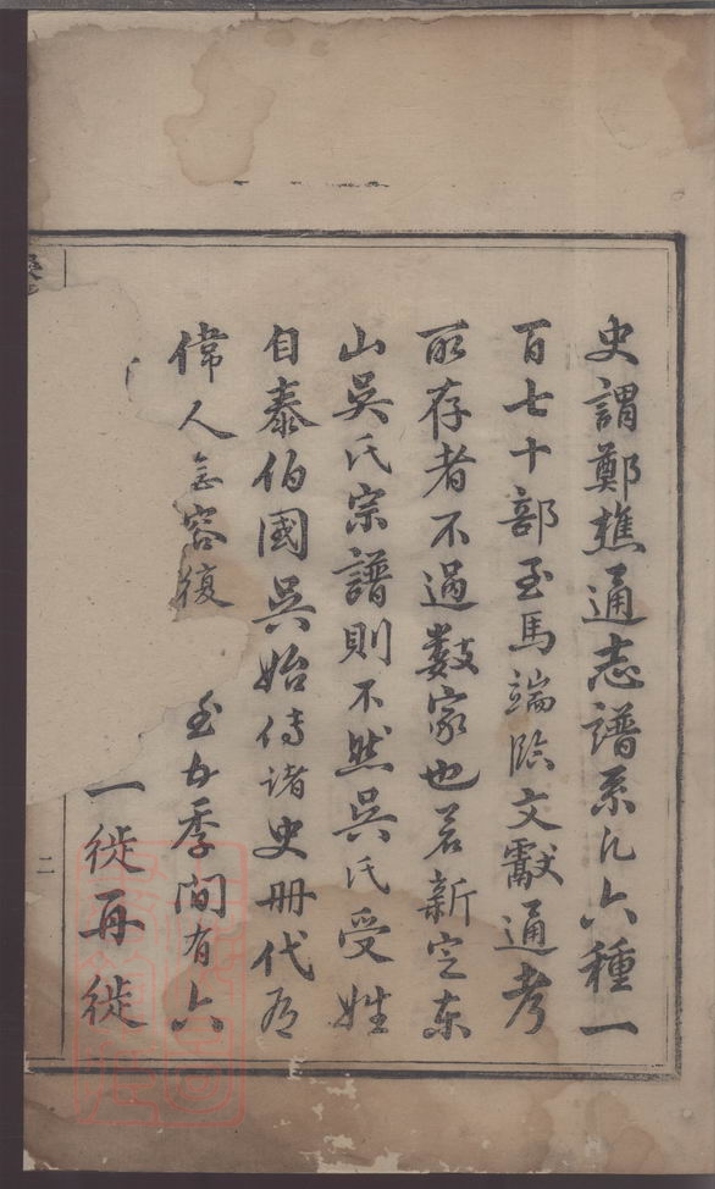 史謂鄭樵通志譜系凡六種一
百七十部至馬端臨文獻通考
所存者不過數家也若新定東
山吳氏宗譜則不然吳氏受姓
自泰伯國吳始傳諸史冊代有
偉人無容復至五季間有六
一徙再徙
二